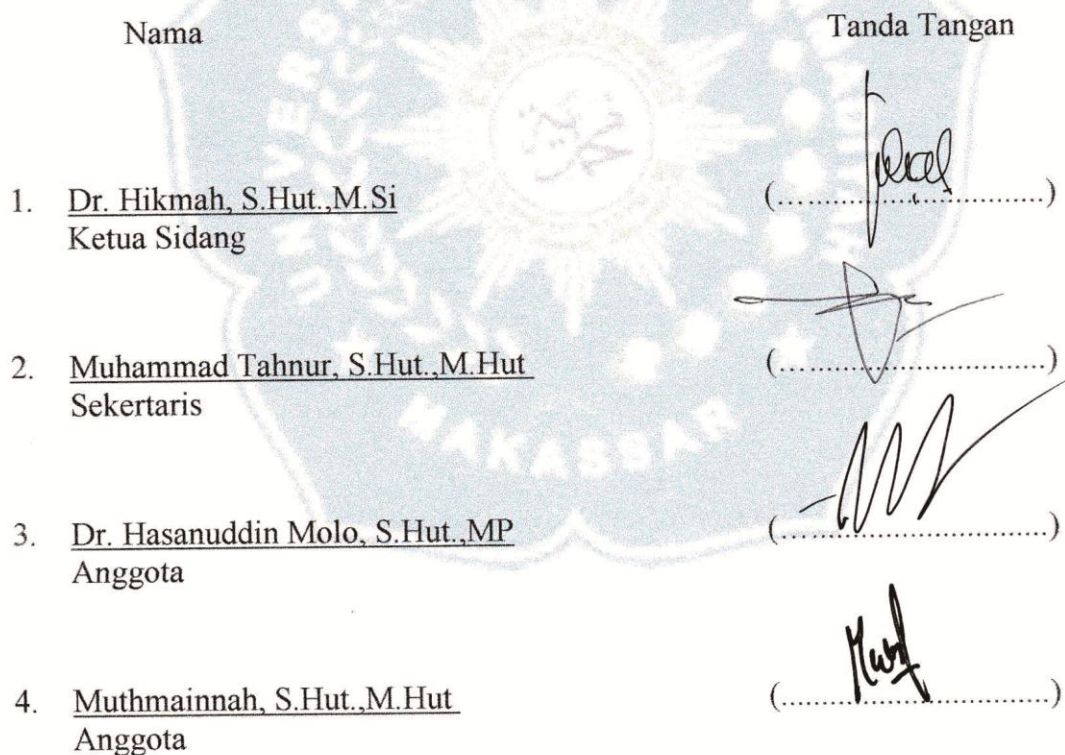 Nama Tanda Tangan
1. Dr. Hikmah, S.Hut.,M.Si (..................................)
Ketua Sidang
2. Muhammad Tahnur, S.Hut.,M.Hut (..................................)
Sekertaris
3. Dr. Hasanuddin Molo, S.Hut.,MP (..................................)
Anggota
4. Muthmainnah, S.Hut.,M.Hut (..................................)
Anggota
MAKASSAR